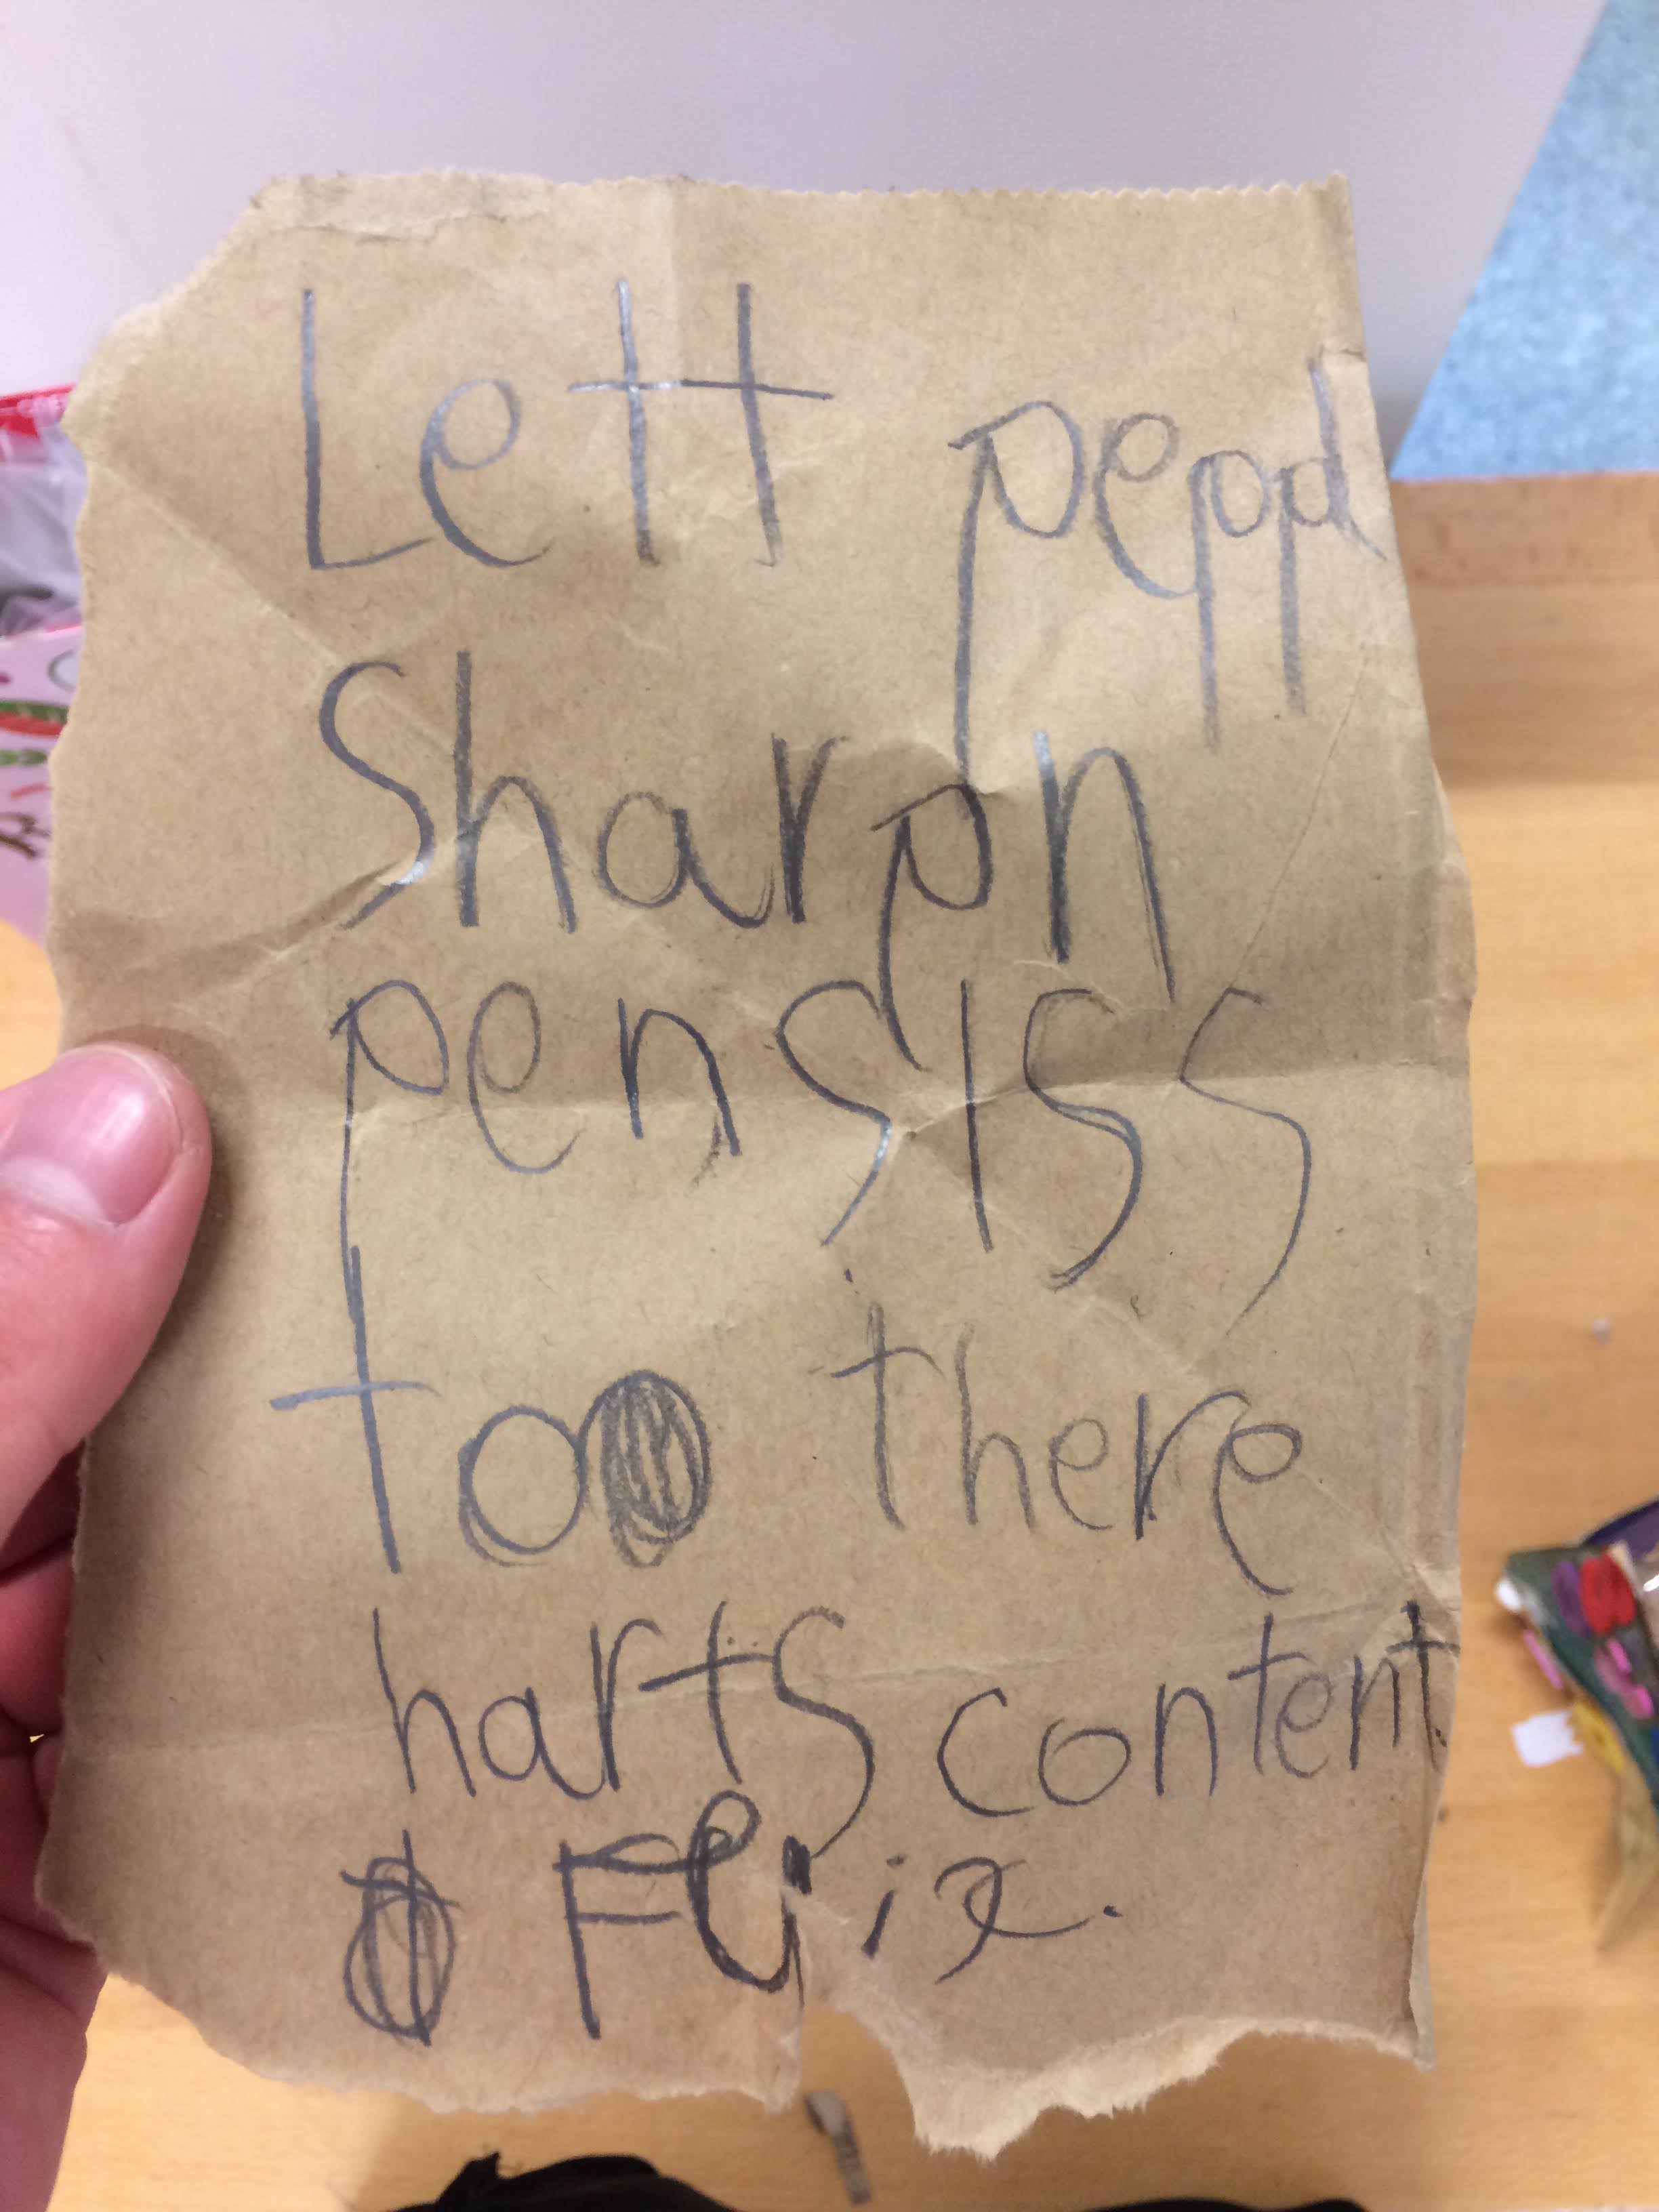 Lett peppl
Sharpn
pensiss
to there
harts content
Felix.